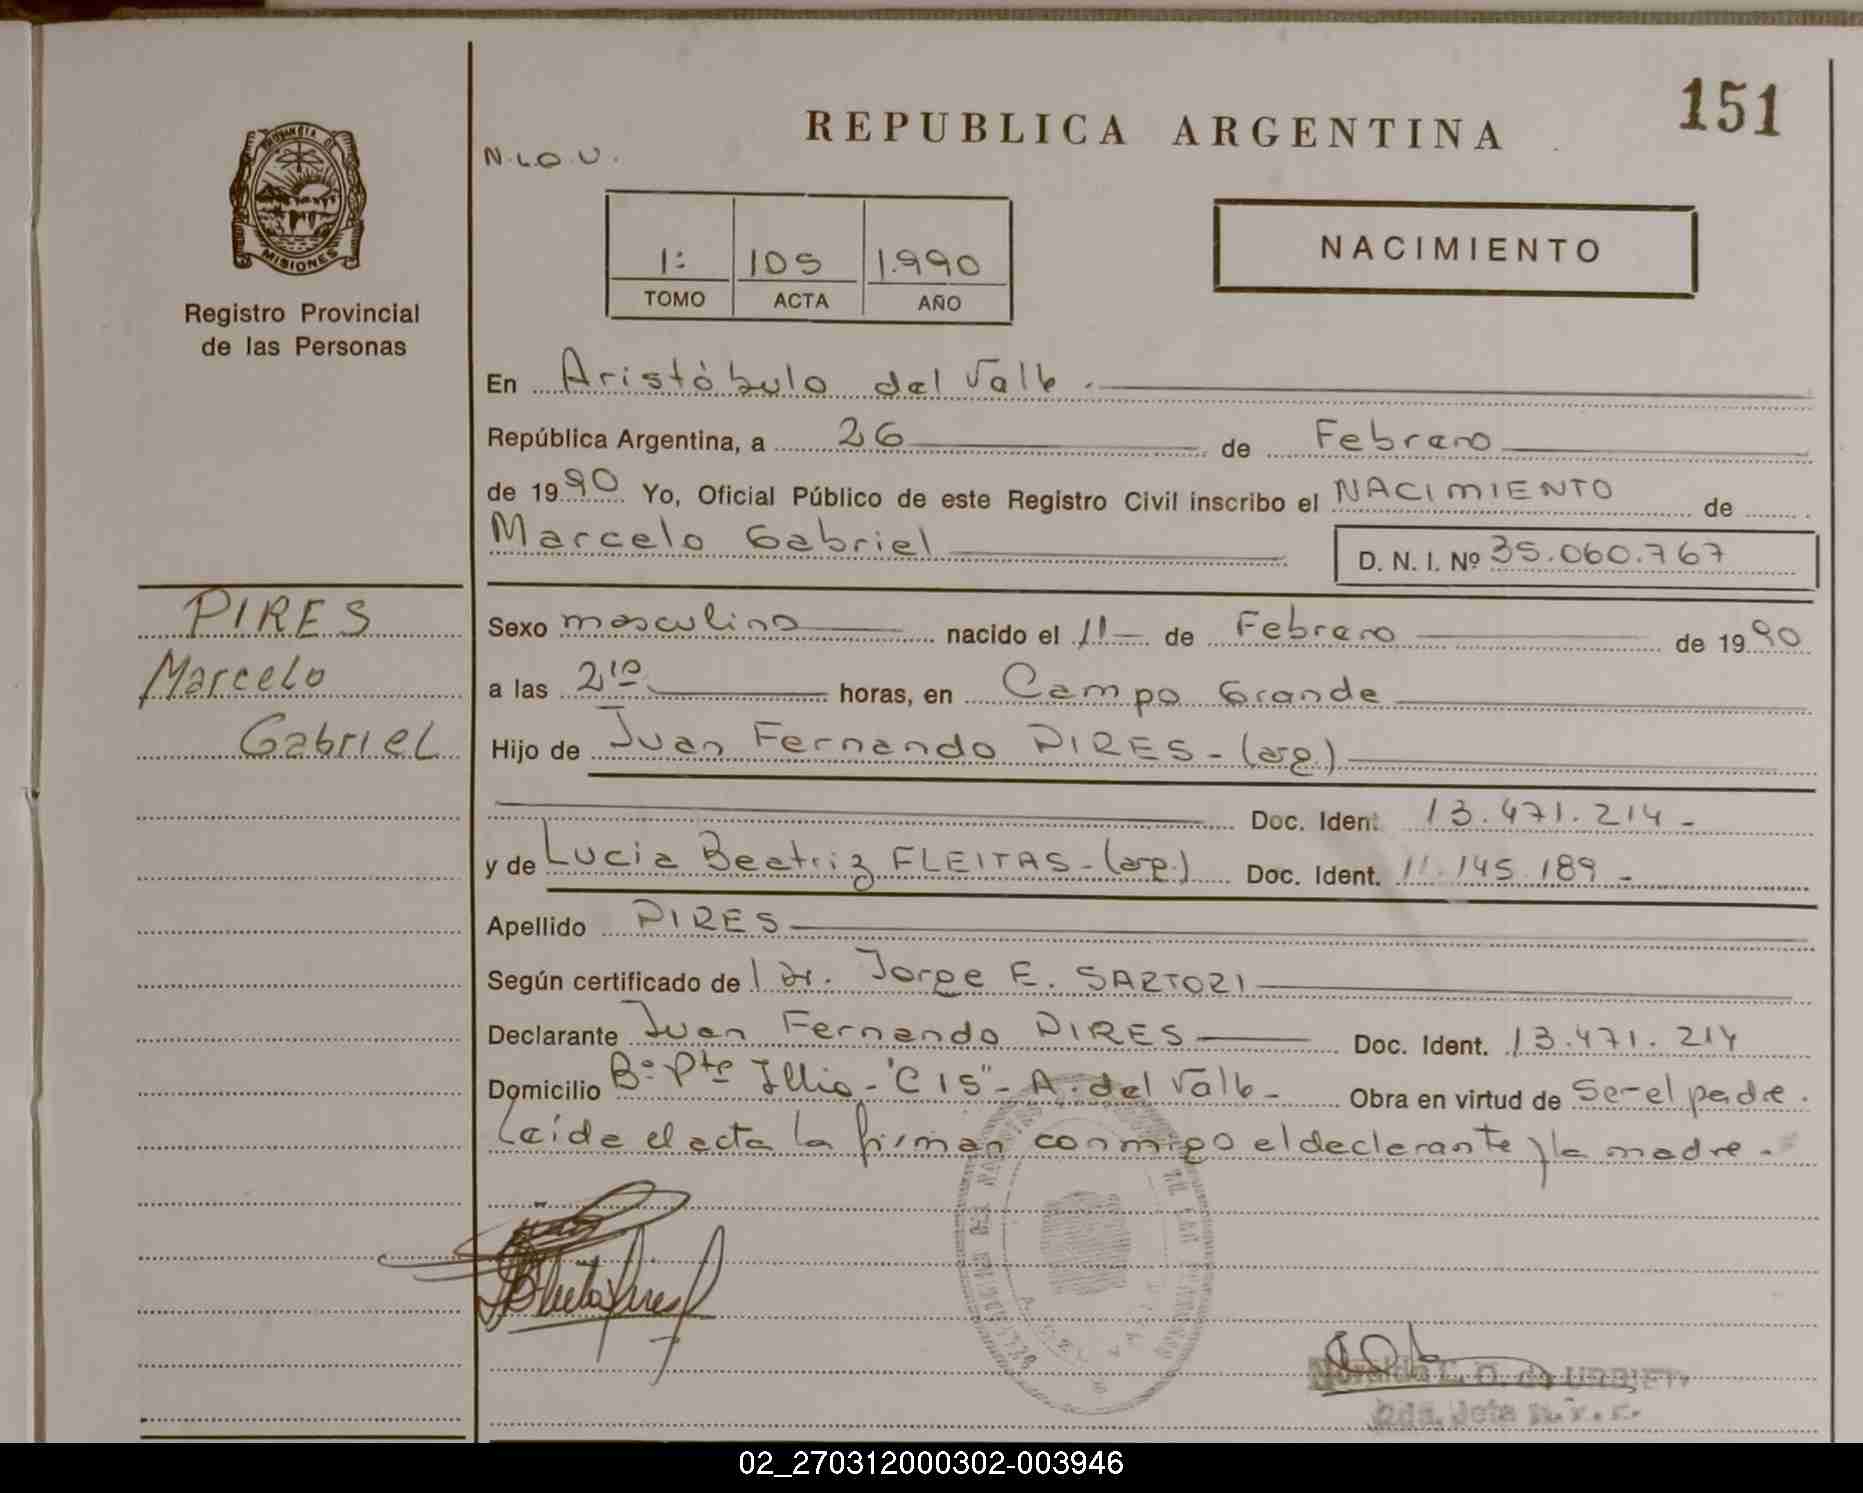 151
REPUBLICA ARGENTINA
PROVINCIA DE
MISIONES
Registro Provincial
de las Personas
N.L.O.U.
1: 105 1.990
TOMO ACTA AÑO
NACIMIENTO
En Aristóbulo del Valle.
República Argentina, a 26 de Febrero
de 1990 Yo, Oficial Público de este Registro Civil inscribo el NACIMIENTO de
Marcelo Gabriel D. N. I. Nº 35.060.767
PIRES
Marcelo
Gabriel
Sexo masculino nacido el 11 de Febrero de 1990
a las 2,10 horas, en Campo Grande
Hijo de Juan Fernando PIRES - (arg.)
Doc. Ident. 13.471.214 -
y de Lucia Beatriz FLEITAS - (arg.) Doc. Ident. 11.145.189 -
Apellido PIRES
Según certificado del Dr. Jorge E. SARTORI
Declarante Juan Fernando PIRES Doc. Ident. 13.471.214
Domicilio Bº Pte Illia - "C 15" - A. del Valle - Obra en virtud de Ser el padre.
Leída el acta la firman conmigo el declarante y la madre.
02_270312000302-003946